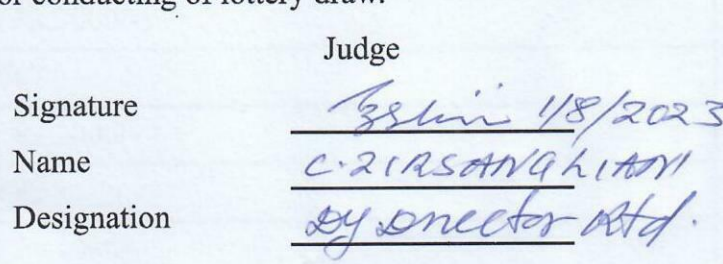 or conducting of lottery draw.
Judge
Signature 1/8/2023
Name C. ZIRSANGLIANI
Designation Dy Director Rtd.